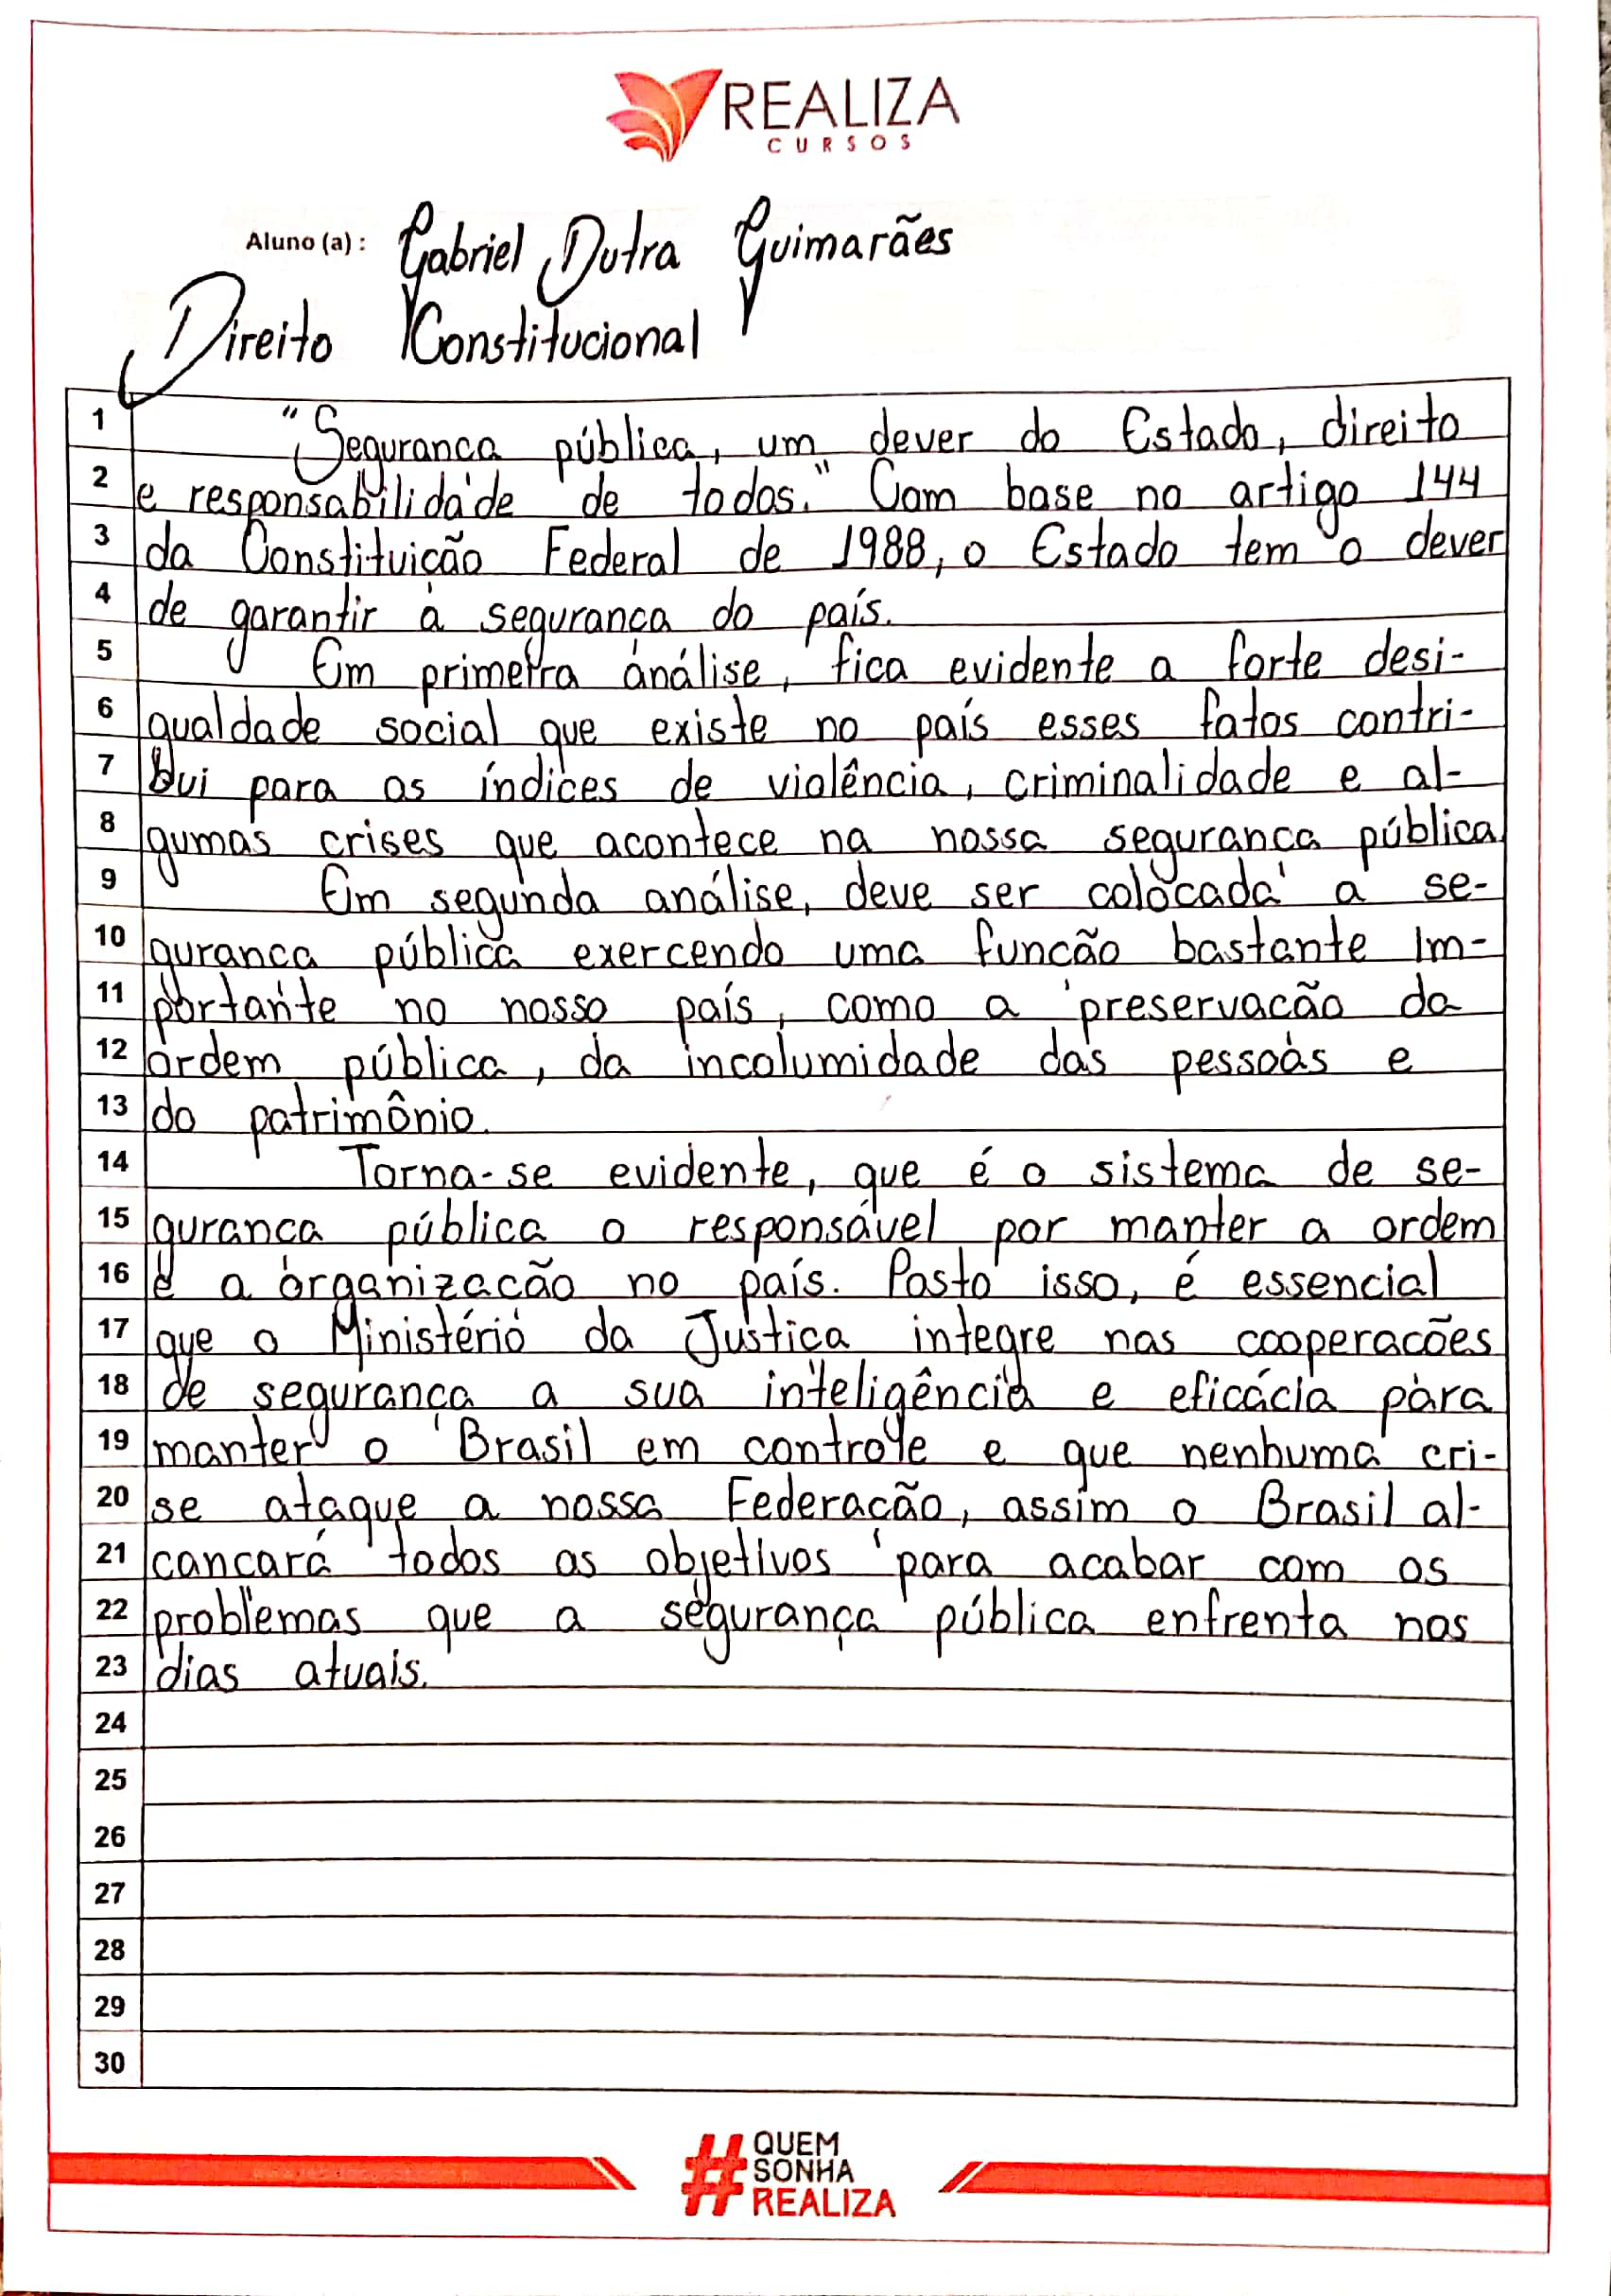 REALIZA
CURSOS
Aluno (a) : Gabriel Dutra Guimarães
Direito Constitucional
1 "Segurança pública, um dever do Estado, direito
2 e responsabilidade de todos." Com base no artigo 144
3 da Constituição Federal de 1988, o Estado tem o dever
4 de garantir a segurança do país.
5 Em primeira análise, fica evidente a forte desi-
6 gualdade social que existe no país esses fatos contri-
7 bui para os índices de violência, criminalidade e al-
8 gumas crises que acontece na nossa segurança pública.
9 Em segunda análise, deve ser colocada a se-
10 gurança pública exercendo uma função bastante im-
11 portante no nosso país, como a preservação da
12 ordem pública, da incolumidade das pessoas e
13 do patrimônio.
14 Torna-se evidente, que é o sistema de se-
15 gurança pública o responsável por manter a ordem
16 e a organização no país. Posto isso, é essencial
17 que o Ministério da Justiça integre nas cooperações
18 de segurança a sua inteligência e eficácia para
19 manter o Brasil em controle e que nenhuma cri-
20 se ataque a nossa Federação, assim o Brasil al-
21 cançará todos os objetivos para acabar com os
22 problemas que a segurança pública enfrenta nos
23 dias atuais.
24
25
26
27
28
29
30
#QUEM
SONHA
REALIZA